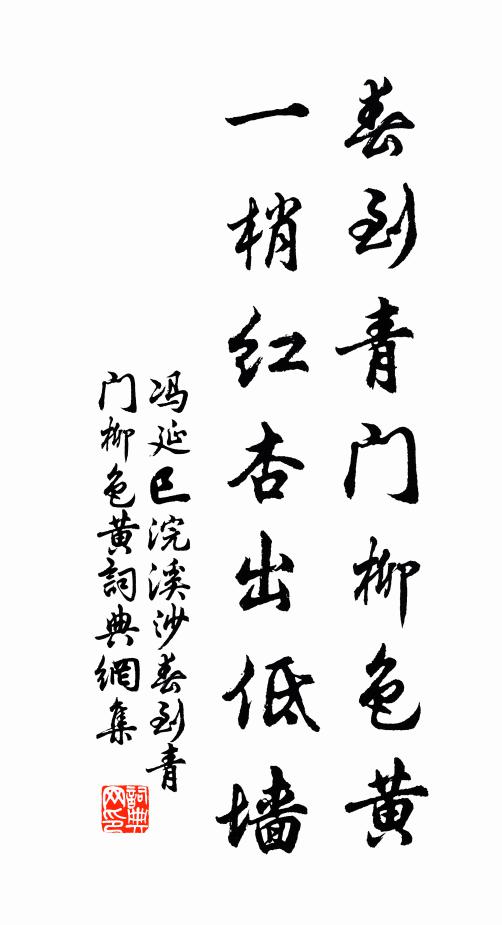 春到青门柳色黄
一梢红杏出低墙
冯延巳浣溪沙春到青
门柳色黄詞典網集
詞典
网印